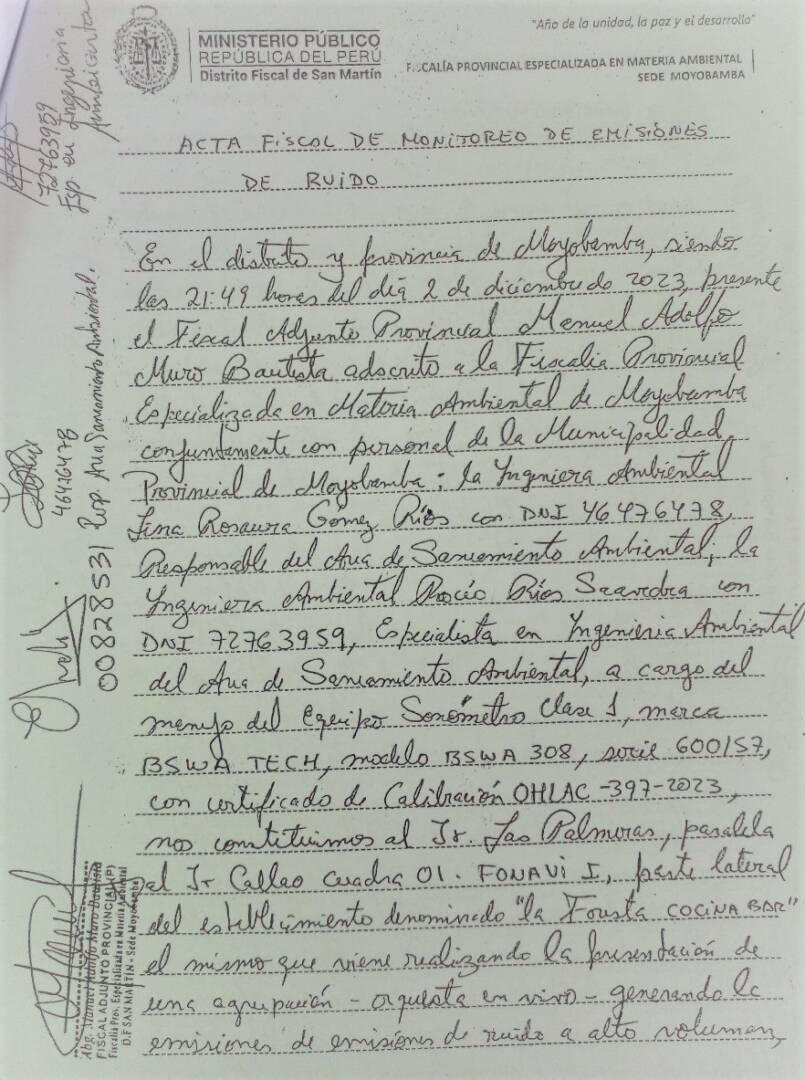 "Año de la unidad, la paz y el desarrollo"
MINISTERIO PÚBLICO
REPÚBLICA DEL PERÚ
Distrito Fiscal de San Martín
FISCALÍA PROVINCIAL ESPECIALIZADA EN MATERIA AMBIENTAL
SEDE MOYOBAMBA
ACTA FISCOL DE MONITOREO DE EMISIONES
DE RUIDO
En el distrito y provincia de Moyobamba, siendo
las 21:49 horas del día 2 de diciembre de 2023, presente
el Fiscal Adjunto Provincial Manuel Adolfo
Muro Bautista adscrito a la Fiscalia Provincial
Especializada en Materia Ambiental de Moyobamba
conjuntamente con personal de la Municipalidad
Provincial de Moyobamba: la Ingeniera Ambiental
Rosaura Gómez Ríos con DNI 46476478,
Responsable del Area de Saneamiento Ambiental; la
Ingeniera Ambiental Rocío Ríos Saavedra con
DNI 72763959, Especialista en Ingenieria Ambiental
del Area de Saneamiento Ambiental, a cargo del
manejo del Equipo Sonómetro Clase 1, marca
BSWA TECH, modelo BSWA 308, serie 600157,
con certificado de Calibración OHLAC-397-2023,
nos constituimos al Jr. Las Palmeras, paralela
al Jr Callao cuadra 01. FONAVI I, parte lateral
del establecimiento denominado "la Fousta COCINA BAR"
el mismo que viene realizando la presentación de
una agrupación - orquesta en vivo - generando la
emisiones de emisiones de ruido a alto volumen,
72763959
Esp. en Ingenieria
Ambiental
46476478
Resp. Area Saneamiento Ambiental.
00828531
Abg. Manuel Adolfo Muro Bautista
FISCAL ADJUNTO PROVINCIAL (P)
Fiscalía Prov. Especializada en Materia Ambiental
D.F SAN MARTÍN - Sede Moyobamba